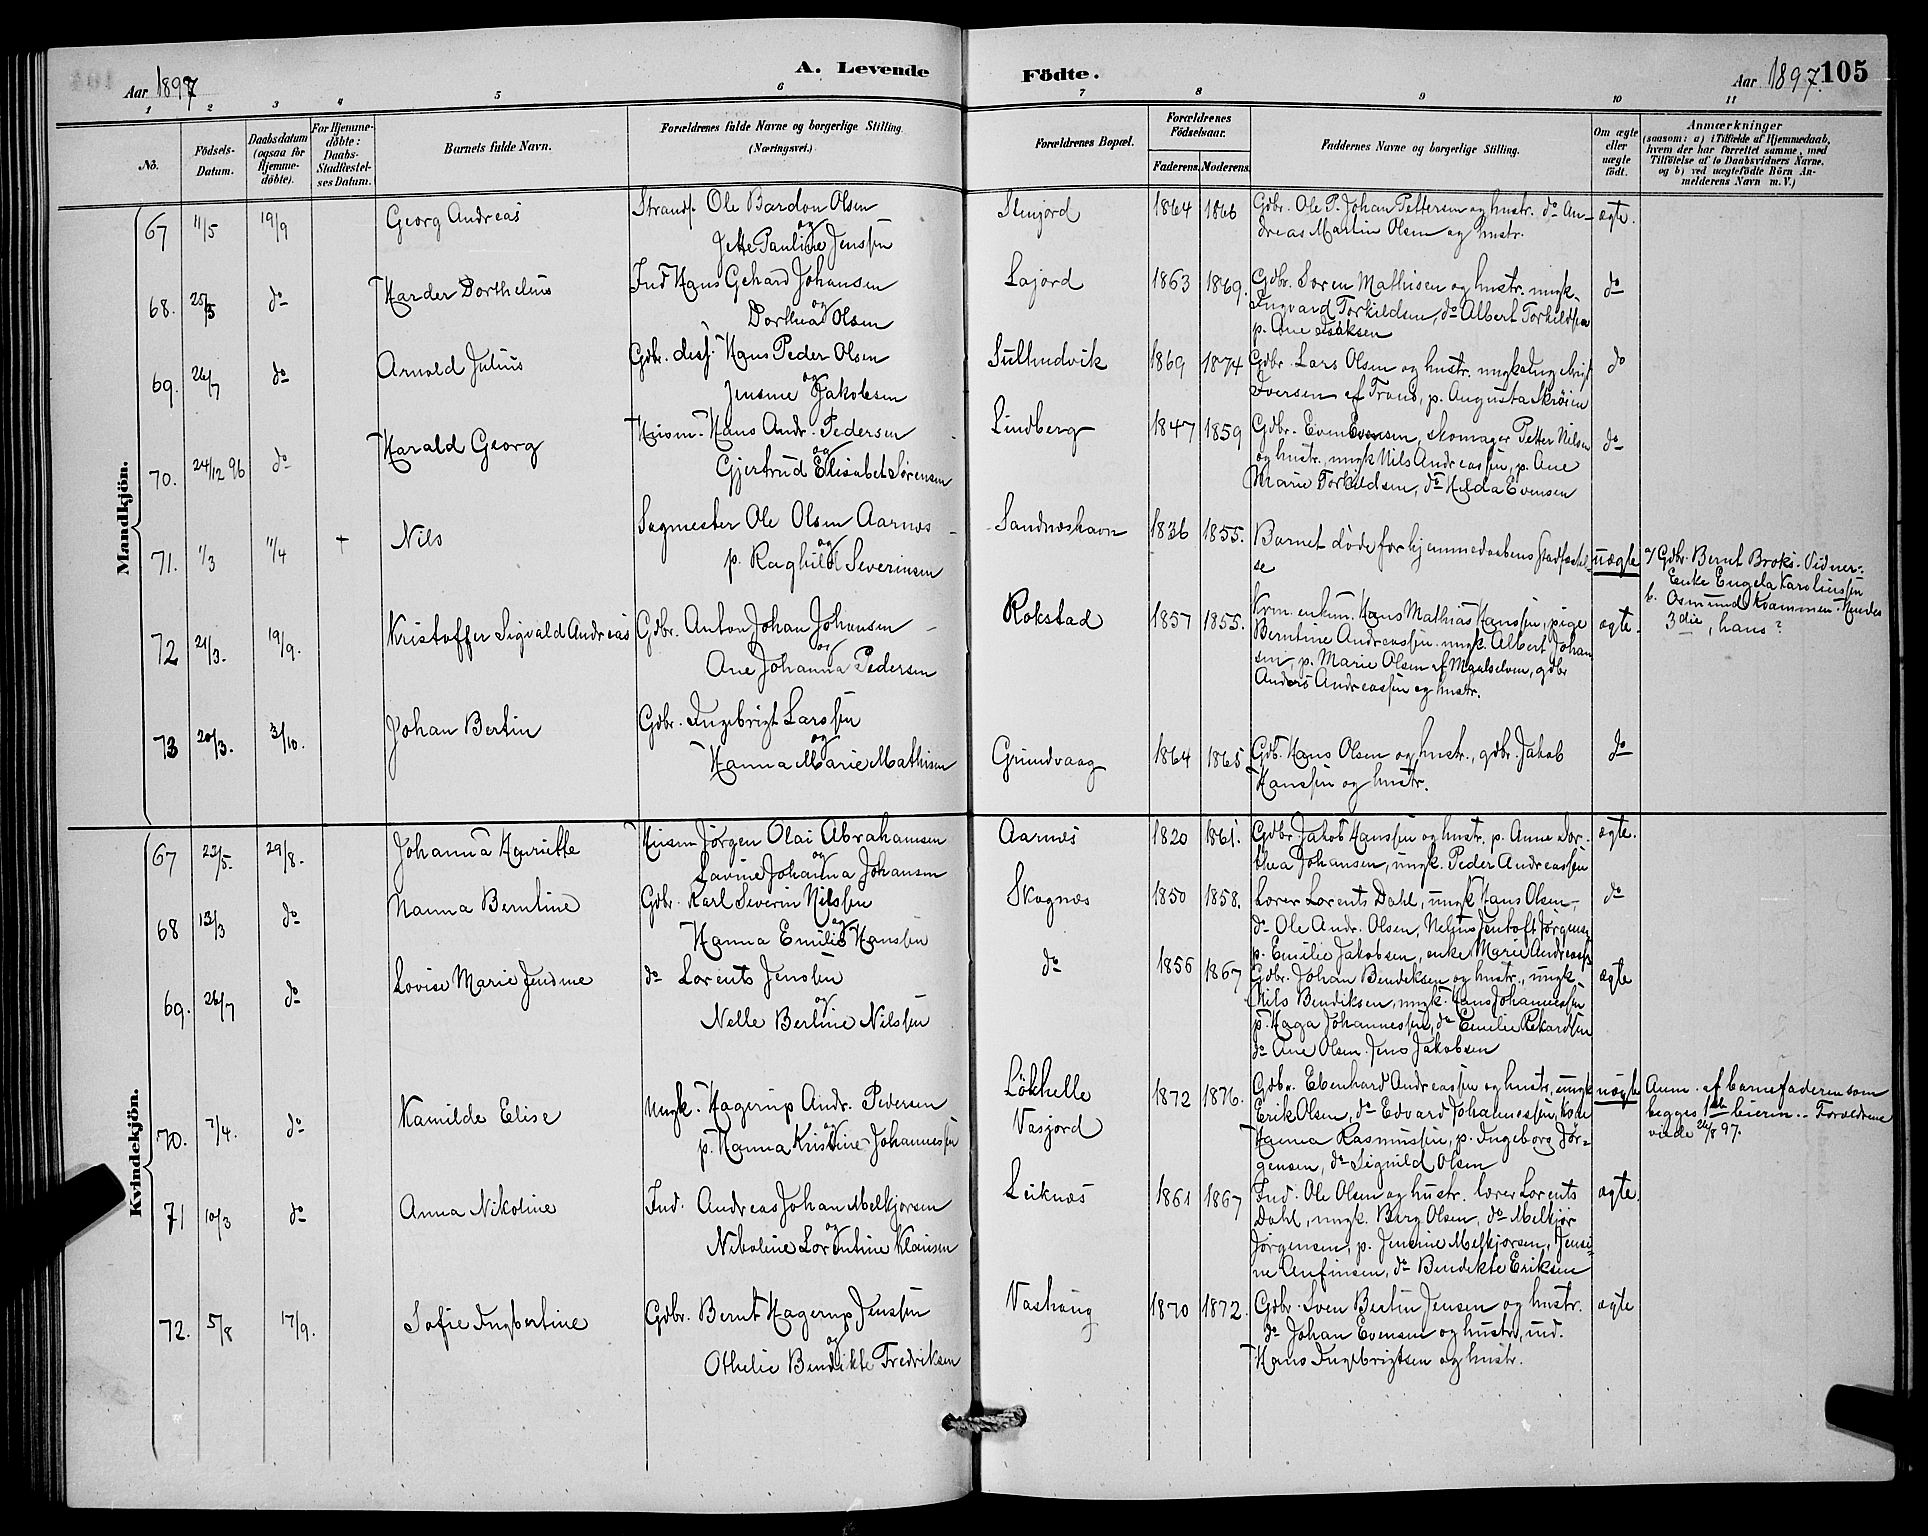 Aar 1897
A. Levende
Födte.
Aar 1897. 105
1 2 3 4 5 6 7 8 9 10 11
No.
Födsels-
Datum.
Daabsdatum
(ogsaa for
Hjemme-
döbte).
For Hjemme-
döbte:
Daabs-
Stadfæstel-
ses Datum.
Barnets fulde Navn.
Forældrenes fulde Navne og borgerlige Stilling
(Næringsvei.)
Forældrenes Bopæl.
Forældrenes
Födselsaar.
Faderens. Moderens.
Faddernes Navne og borgerlige Stilling.
Om ægte
eller
uægte
født.
Anmærkninger
(saasom: a) i Tilfælde af Hjemmedaab,
hvem der har forrettet samme, med
Tilföielse af to Daabsvidners Navne,
og b) ved uægtefödte Börn An-
melderens Navn m. V.)
Mandkjön.
67 11/5 19/9 Georg Andreas
Strands. Ole Bardon Olsen
og
Jette Pauline Jenssen
Stenjord 1864 1866
Gdbr. Ole P. Johan Pettersen og hustr. do An-
dreas Martin Olsen og hustr.
ægte.
68. 25/5 do Harder Dorthelius
Ind Hans Gehard Johansen
og
Dorthea Olsen
Lajord 1863 1869.
Gdbr. Soren Mathisen og hustr. ungk.
Ingvard Torkildsen, do Albert Torkildsen
p. Ane Isaksen
do
69. 26/7 do Arnold Julius
Gdbr. des. Hans Peder Olsen
og
Jensine Jakobsen
Sultindvik 1869 1874
Gdbr. Lars Olsen og hustr. ungk
Iversen af Tranø, p. Augusta
do
70. 24/12 96 do Harald Georg
Husm. Hans Andr. Pedersen
og
Gjertrud Elisabet Sørensen
Lindberg 1847 1859
Gdbr. Even Evensen, skomager Petter Nilsen
og hustr., ungk Nils Andreassen, p. Ane
Marie Torkildsen, do Hilda Evensen
do
71. 1/3 11/4 + Nils
Sagmester Ole Olsen Aarnes
og
p. Raghild Severinsen
Sandnæshavn 1836 1855.
Barnet døde før hjemmedaabens stadfæstel-
se
uægte
a/ Gdbr. Bernt Broks. Vidner:
Enke Engela Karoliussen
b. Osmund Kvammen. Hendes
3die, hans?
72 21/3. 19/9. Kristoffer Sigvald Andreas
Gdbr. Anton Johan Johansen
og
Ane Johanna Pedersen
Rokstad 1857 1855.
Krm. enkem. Hans Mathias Hanssen, pige
Berntine Andreassen. ungk. Albert Johan-
sen, p. Marie Olsen af Maalselven, gdbr
Anders Andreassen og hustr.
ægte.
73 20/3. 3/10. Johan Bertin
Gdbr. Ingebrigt Larssen
og
Hanna Marie Mathisen
Grundvaag 1864 1865
Gdb. Hans Olsen og hustr., gdbr. Jakob
Hanssen og hustr.
do
Kvindekjön.
67 22/5. 29/8. Johanna Henriette
Husm Jørgen Olai Abrahamsen
og
Lavine Johanna Johansen
Aarnes 1820 1861.
Gdbr. Jakob Hanssen og hustr. p. Anne Dor-
thea Johansen, ungk. Peder Andreassen
ægte.
68 13/3 do Nanna Berntine
Gdbr. Karl Severin Nilssen
og
Hanna Emilie Hanssen
Skognæs 1850 1858.
Lærer Lorents Dahl, ungk Hans Olsen,
do Ole Andr. Olsen, Nelius Jentoft Jørgens.
p. Emilie Jakobsen, enke Marie Andreass.
do
69. 26/7 do Lovise Marie Jensine
do Lorents Jenssen
og
Nelle Bertine Nilssen
do 1856 1867
Gdbr. Johan Bendiksen og hustr., ungk.
Nils Bendiksen, ungk. Hans Johannessen
p. Haga Johannessen, do Emilie Rikardsen
do Ane Olsen. Jens Jakobsen
ægte
70. 7/4. do Kamilde Elise
Ungk. Hagerup Andr. Pedersen
og
p. Hanna Kristine Johannessen
Løkhelle
Vasjord
1872 1876.
Gdbr. Ebenhard Andreassen og hustr. ungk
Erik Olsen, do Edvard Johannessen, Kone
Hanna Rasmussen, p. Ingeborg Jør-
gensen, do Signild Olsen
uægte
Anm. af barnefaderen som
begges 1ste leierm. Forældrene
viede 26/8 97.
71 10/3 do Anna Nikoline
Ind. Andreas Johan Melkjorsen
og
Nikoline Lorentine Klausen
Leiknæs 1861 1867
Ind. Ole Olsen og hustr. lærer Lorents
Dahl, ungk. Berg Olsen, do Melkjør
Jørgensen, p. Jensine Melkjorsen, Jensi-
ne Anfinsen, do Bendikte Eriksen
ægte.
72. 5/8 17/9. Sofie Ingbertine
Gdbr. Bernt Hagerup Jenssen
og
Othelie Bendikte Fredriksen
Vashaug 1870 1872.
Gdbr. Sven Bertin Jensen og hustr.
do Johan Evensen og hustr., ind.
Hans Ingebrigtsen og hustr.
ægte